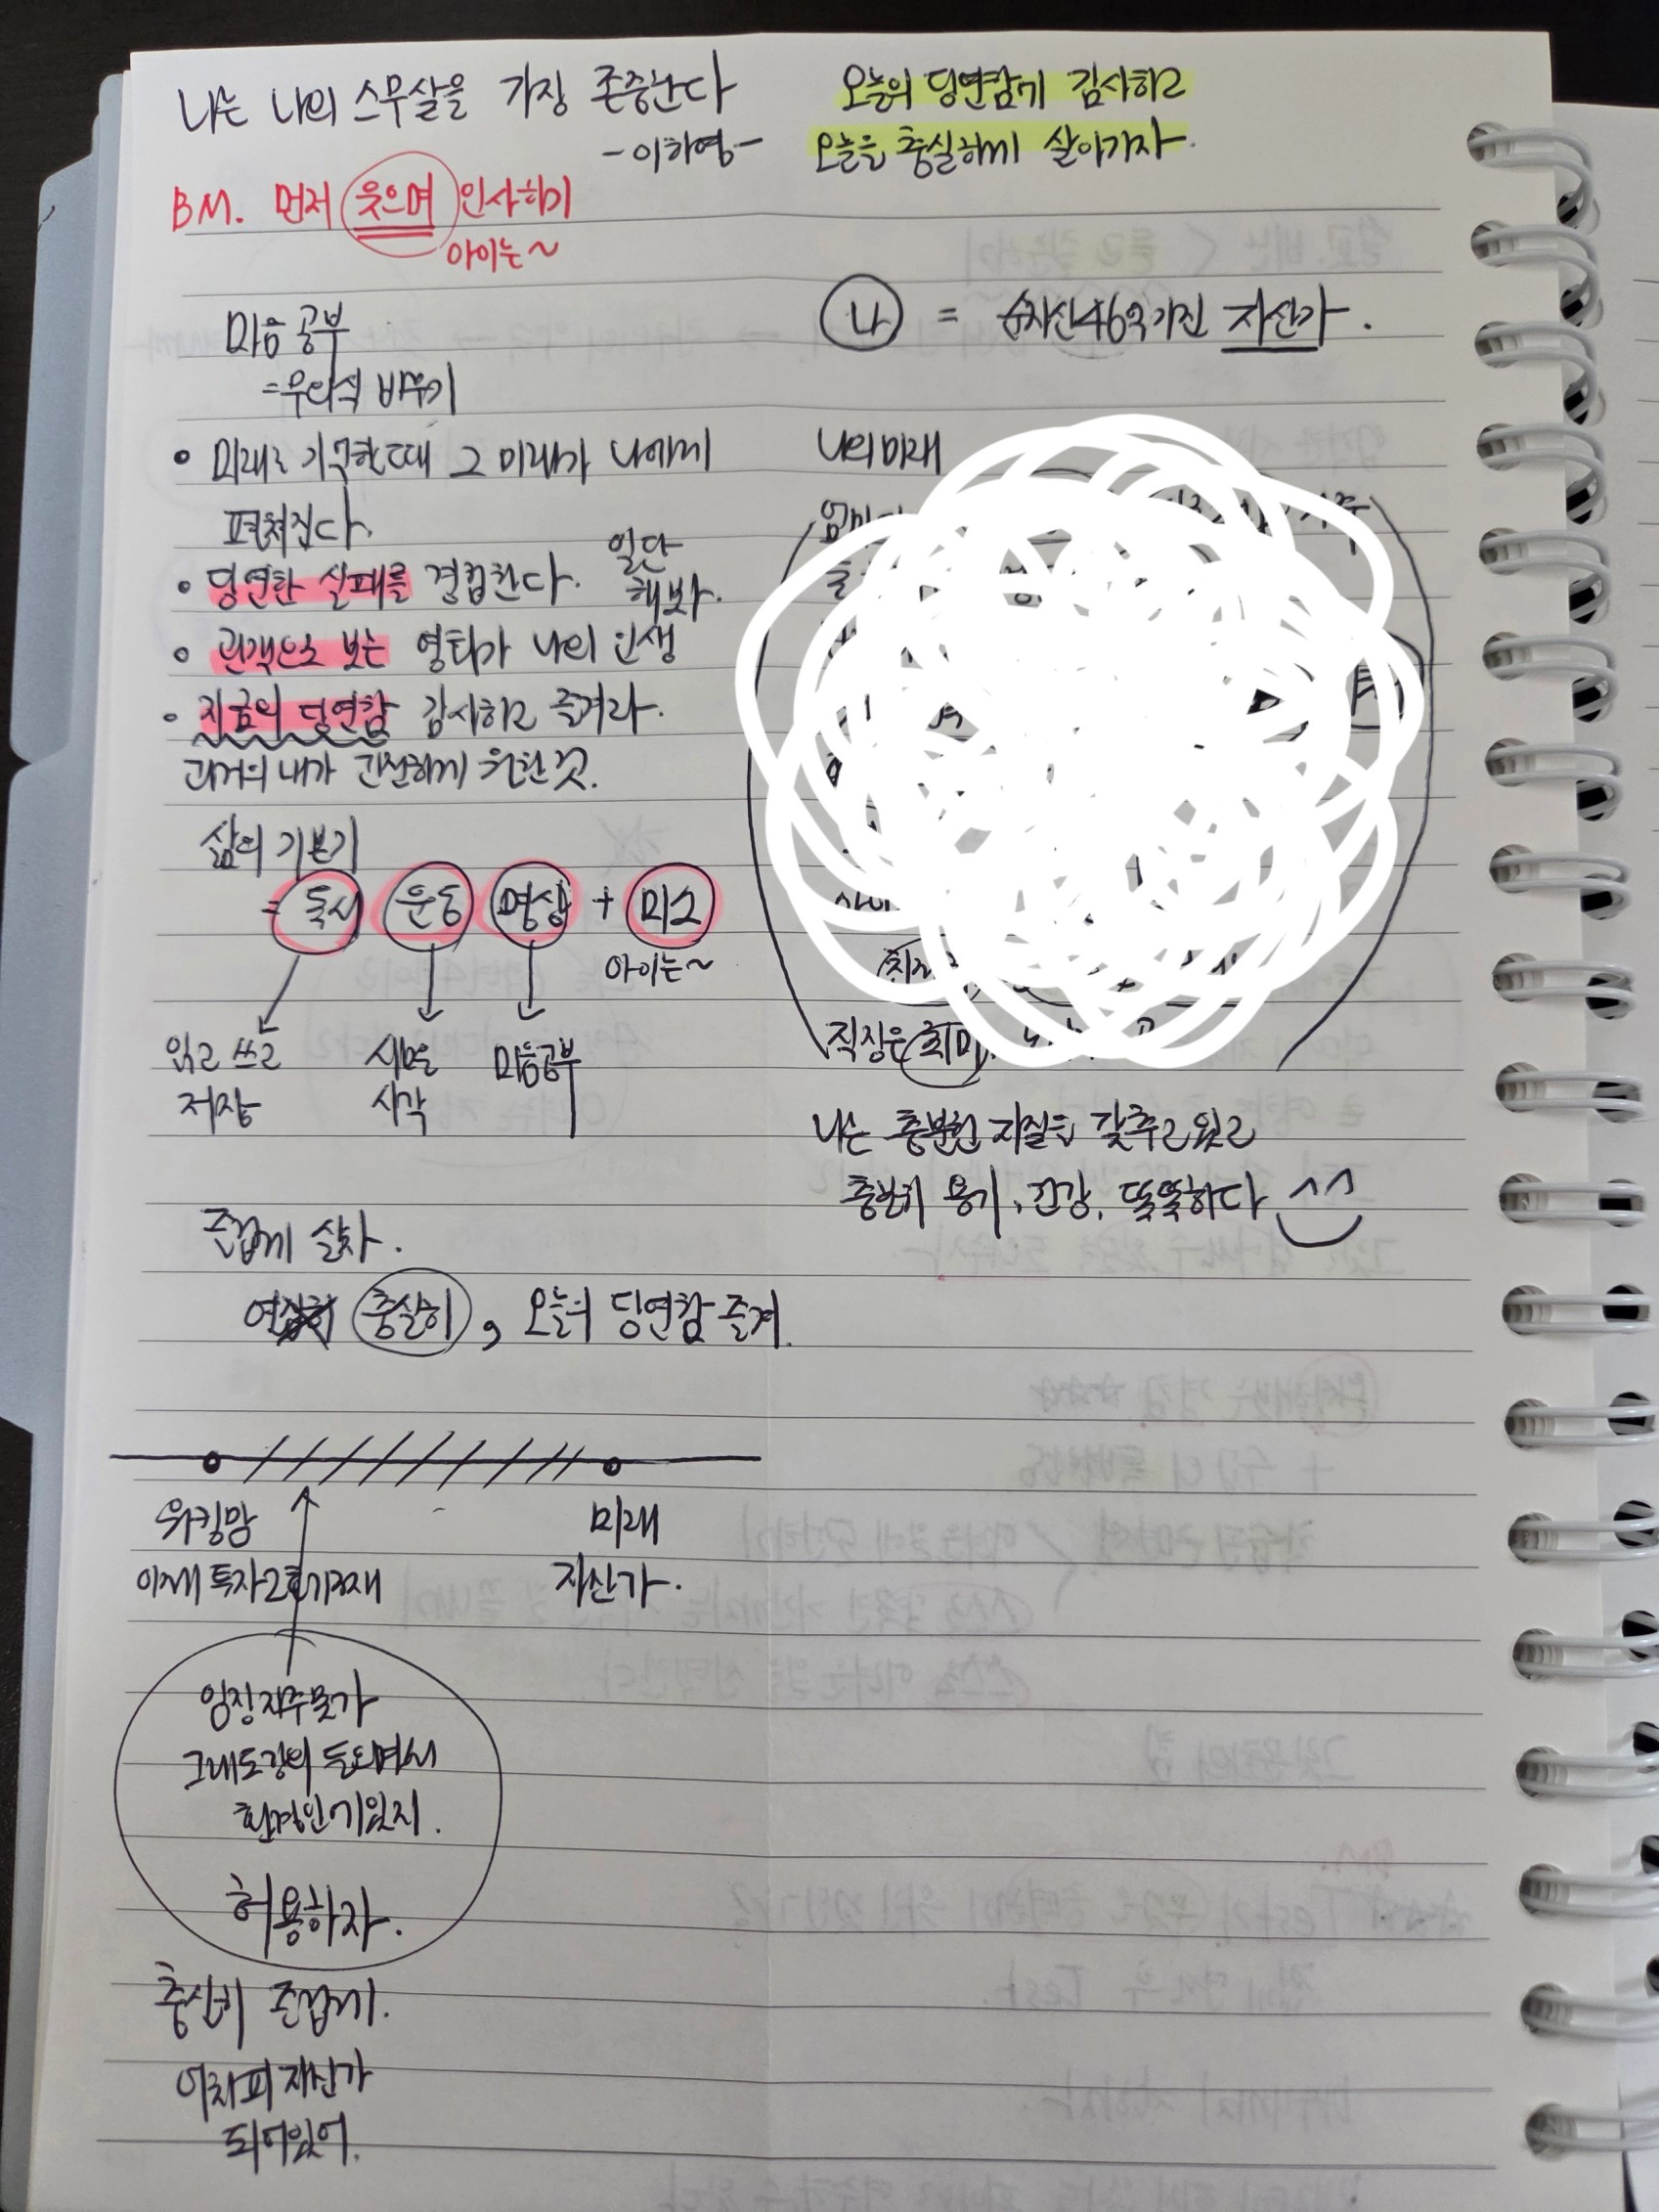 나는 나의 스무살을 가장 존중한다
-이하영-
오늘의 당연함에 감사하고
오늘을 충실하게 살아가자.
BM. 먼저 웃으며 인사하기
아이는~
마음공부
=무의식 바꾸기
• 미래를 기억할때 그 미래가 나에게
펼쳐진다.
• 당연한 실패를 경험한다. 일단
해보자.
• 관객으로 보는 영화가 나의 인생
• 지금의 당연함 감사하고 즐겨라.
과거의 내가 간절하게 원한 것.
삶의 기본기
= 독서 운동 명상 + 미소
아이는~
읽고 쓰고
저장
새로운
시각
마음공부
즐겁게 살자.
열심히 충실히, 오늘의 당연함 즐겨.
워킹맘
이제 투자2호기존재
미래
자산가.
임장자주못가
그래도강의 들으며서
환경안에있지.
허용하자.
충실히 즐겁게.
어차피 자산가
되어있어.
나 = 순자산46억가진 자산가.
나의미래
직장은 취미
나는 충분한 자질을 갖추고있고
충분히 용기, 건강, 똑똑하다 ^^